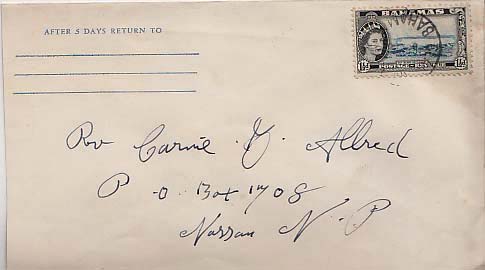 AFTER 5 DAYS RETURN TO
BAHAMAS
POSTAGE & REVENUE
BAHAM
Rev Carrie Y. Allred
P O Box 1708
Nassau N. P